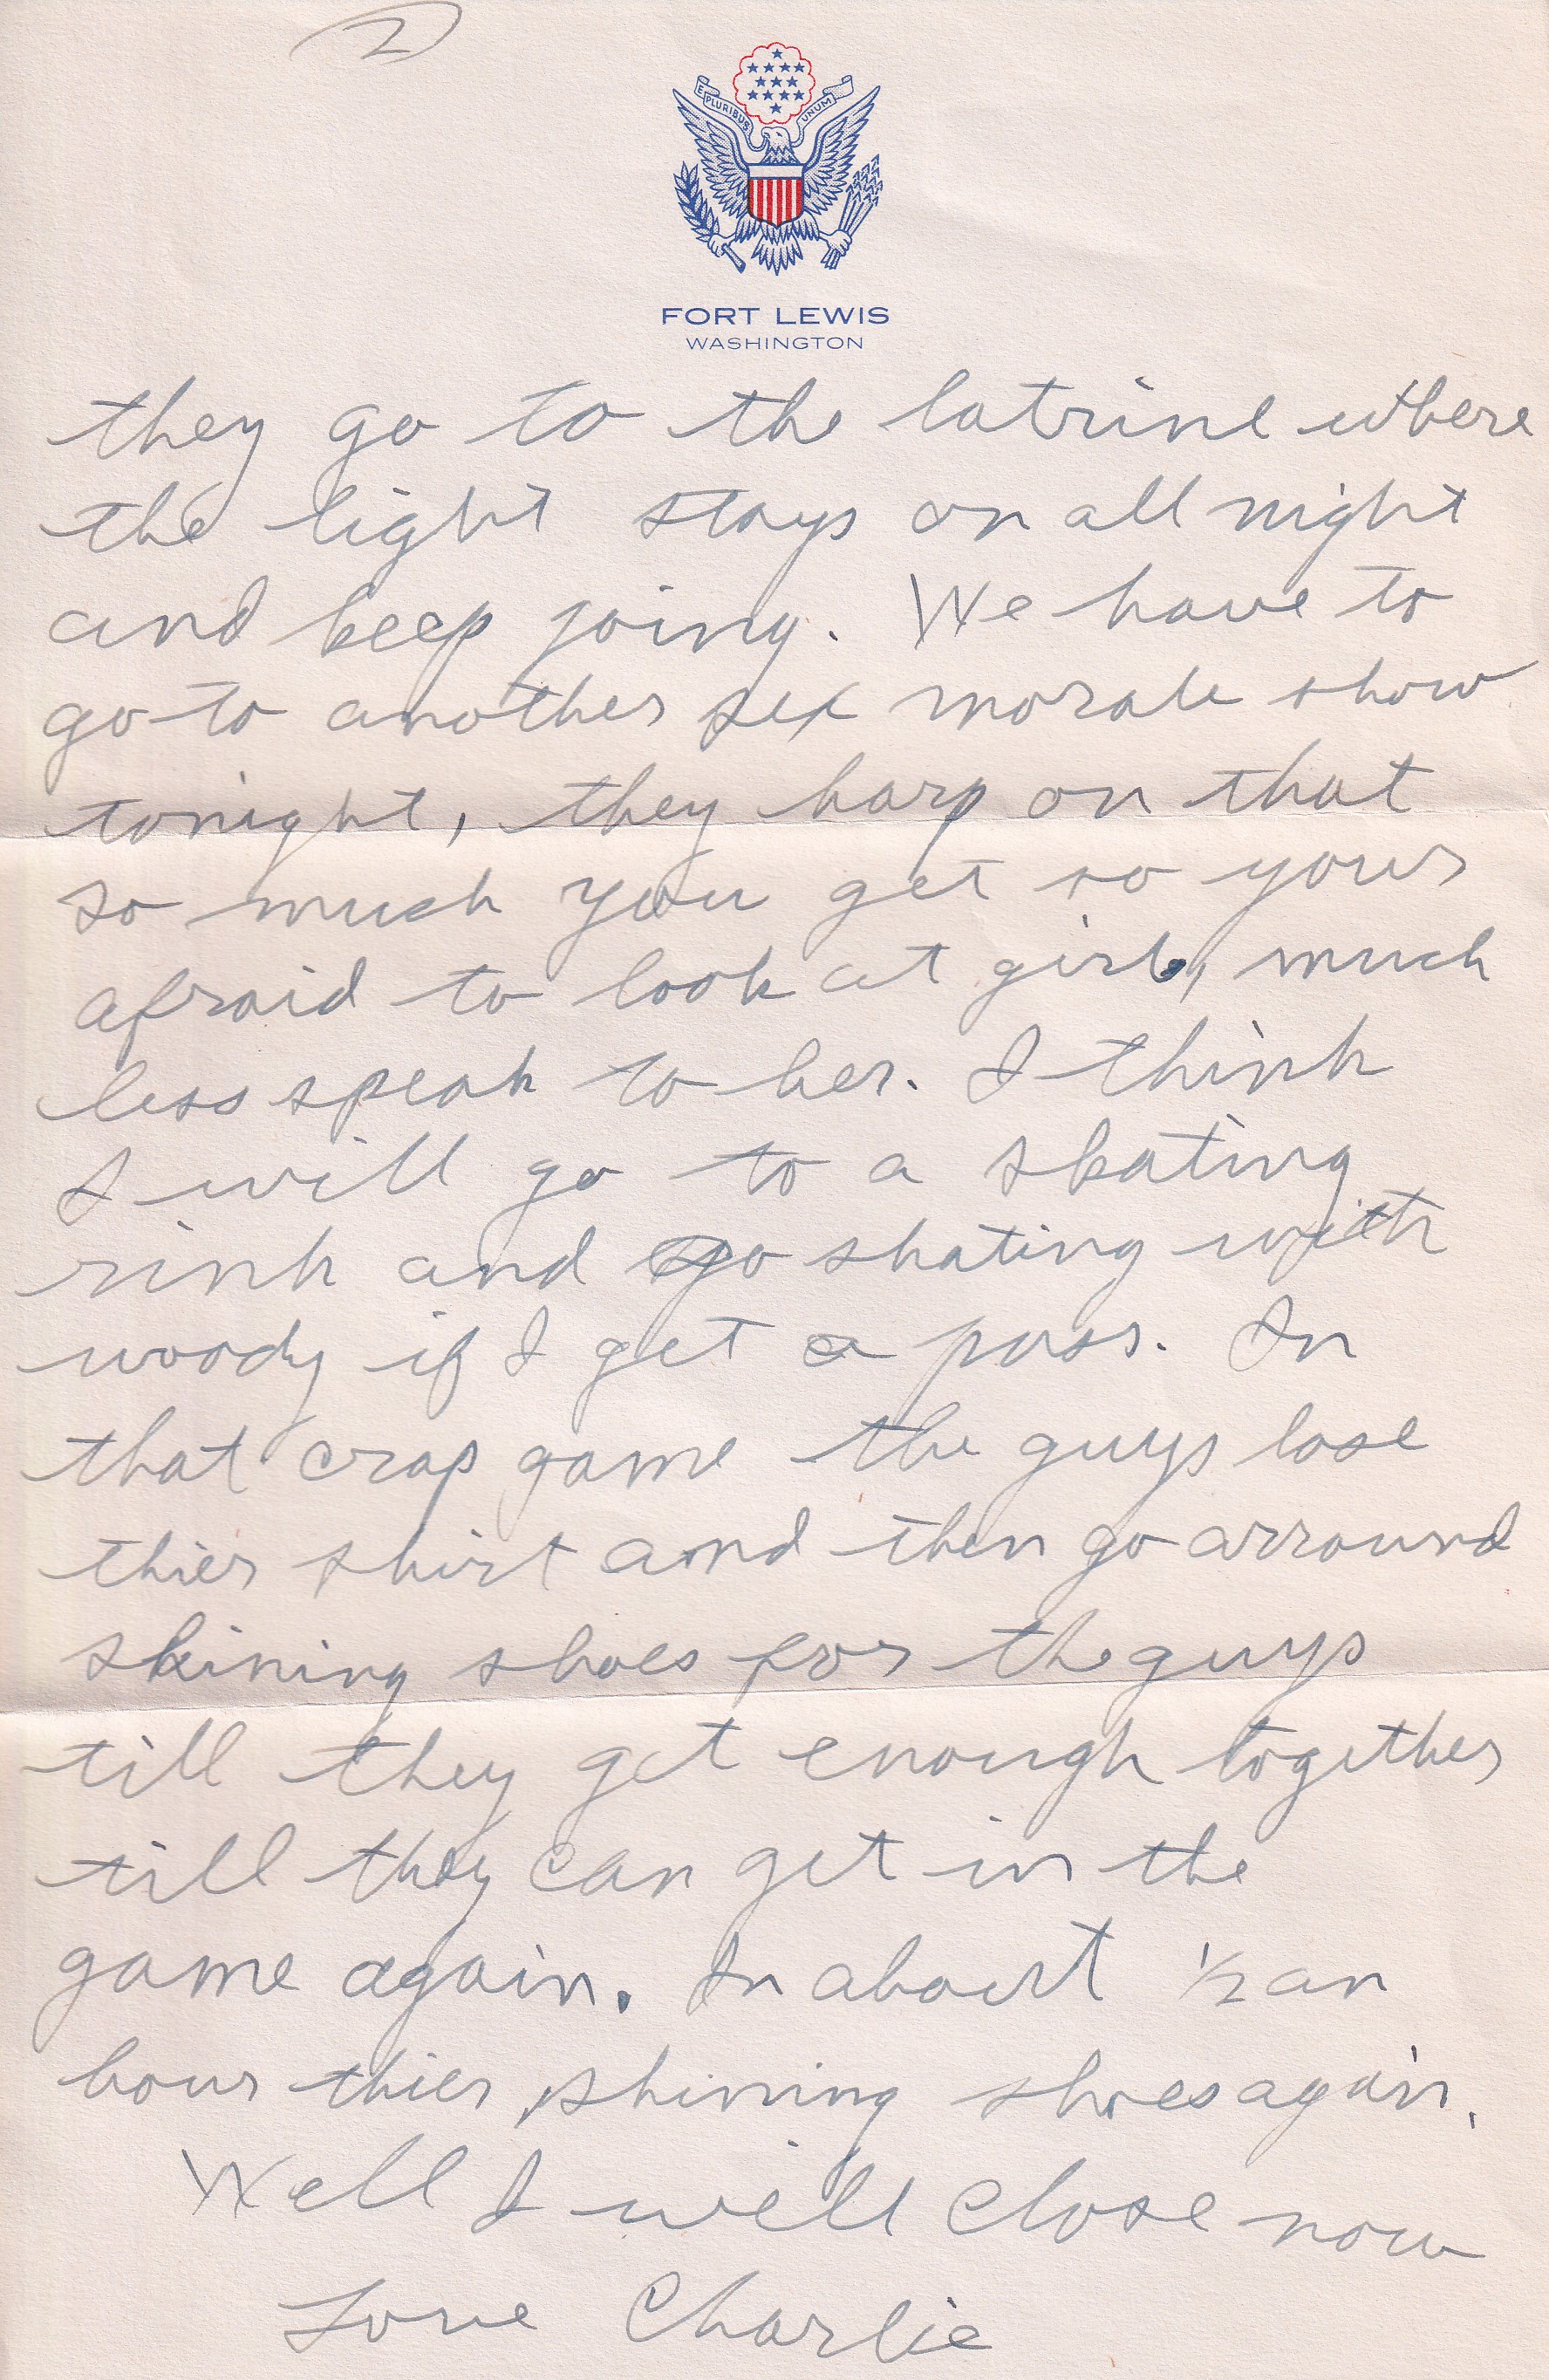 2
E PLURIBUS UNUM
FORT LEWIS
WASHINGTON
they go to the latrine where
the light stays on all night
and keep going. We have to
go to another sex morale show
tonight, they harp on that
so much you get so your
afraid to look at girl, much
less speak to her. I think
I will go to a skating
rink and go skating with
woody if I get a pass. In
that crap game the guys lose
thier shirt and then go arround
shining shoes for the guys
till they get enough together
till they can get in the
game again. In about ½ an
hour thier shining shoes again.
Well I will close now
Love Charlie